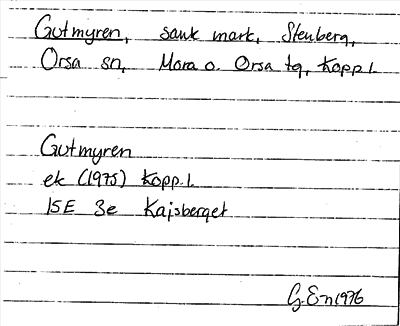 Gutmyren, sank mark, Stenberg,
Orsa sn, Mora o. Orsa tg, Kopp l.
Gutmyren
ek (1975) Kopp. l.
15E 3e Kajsberget
G. En 1976